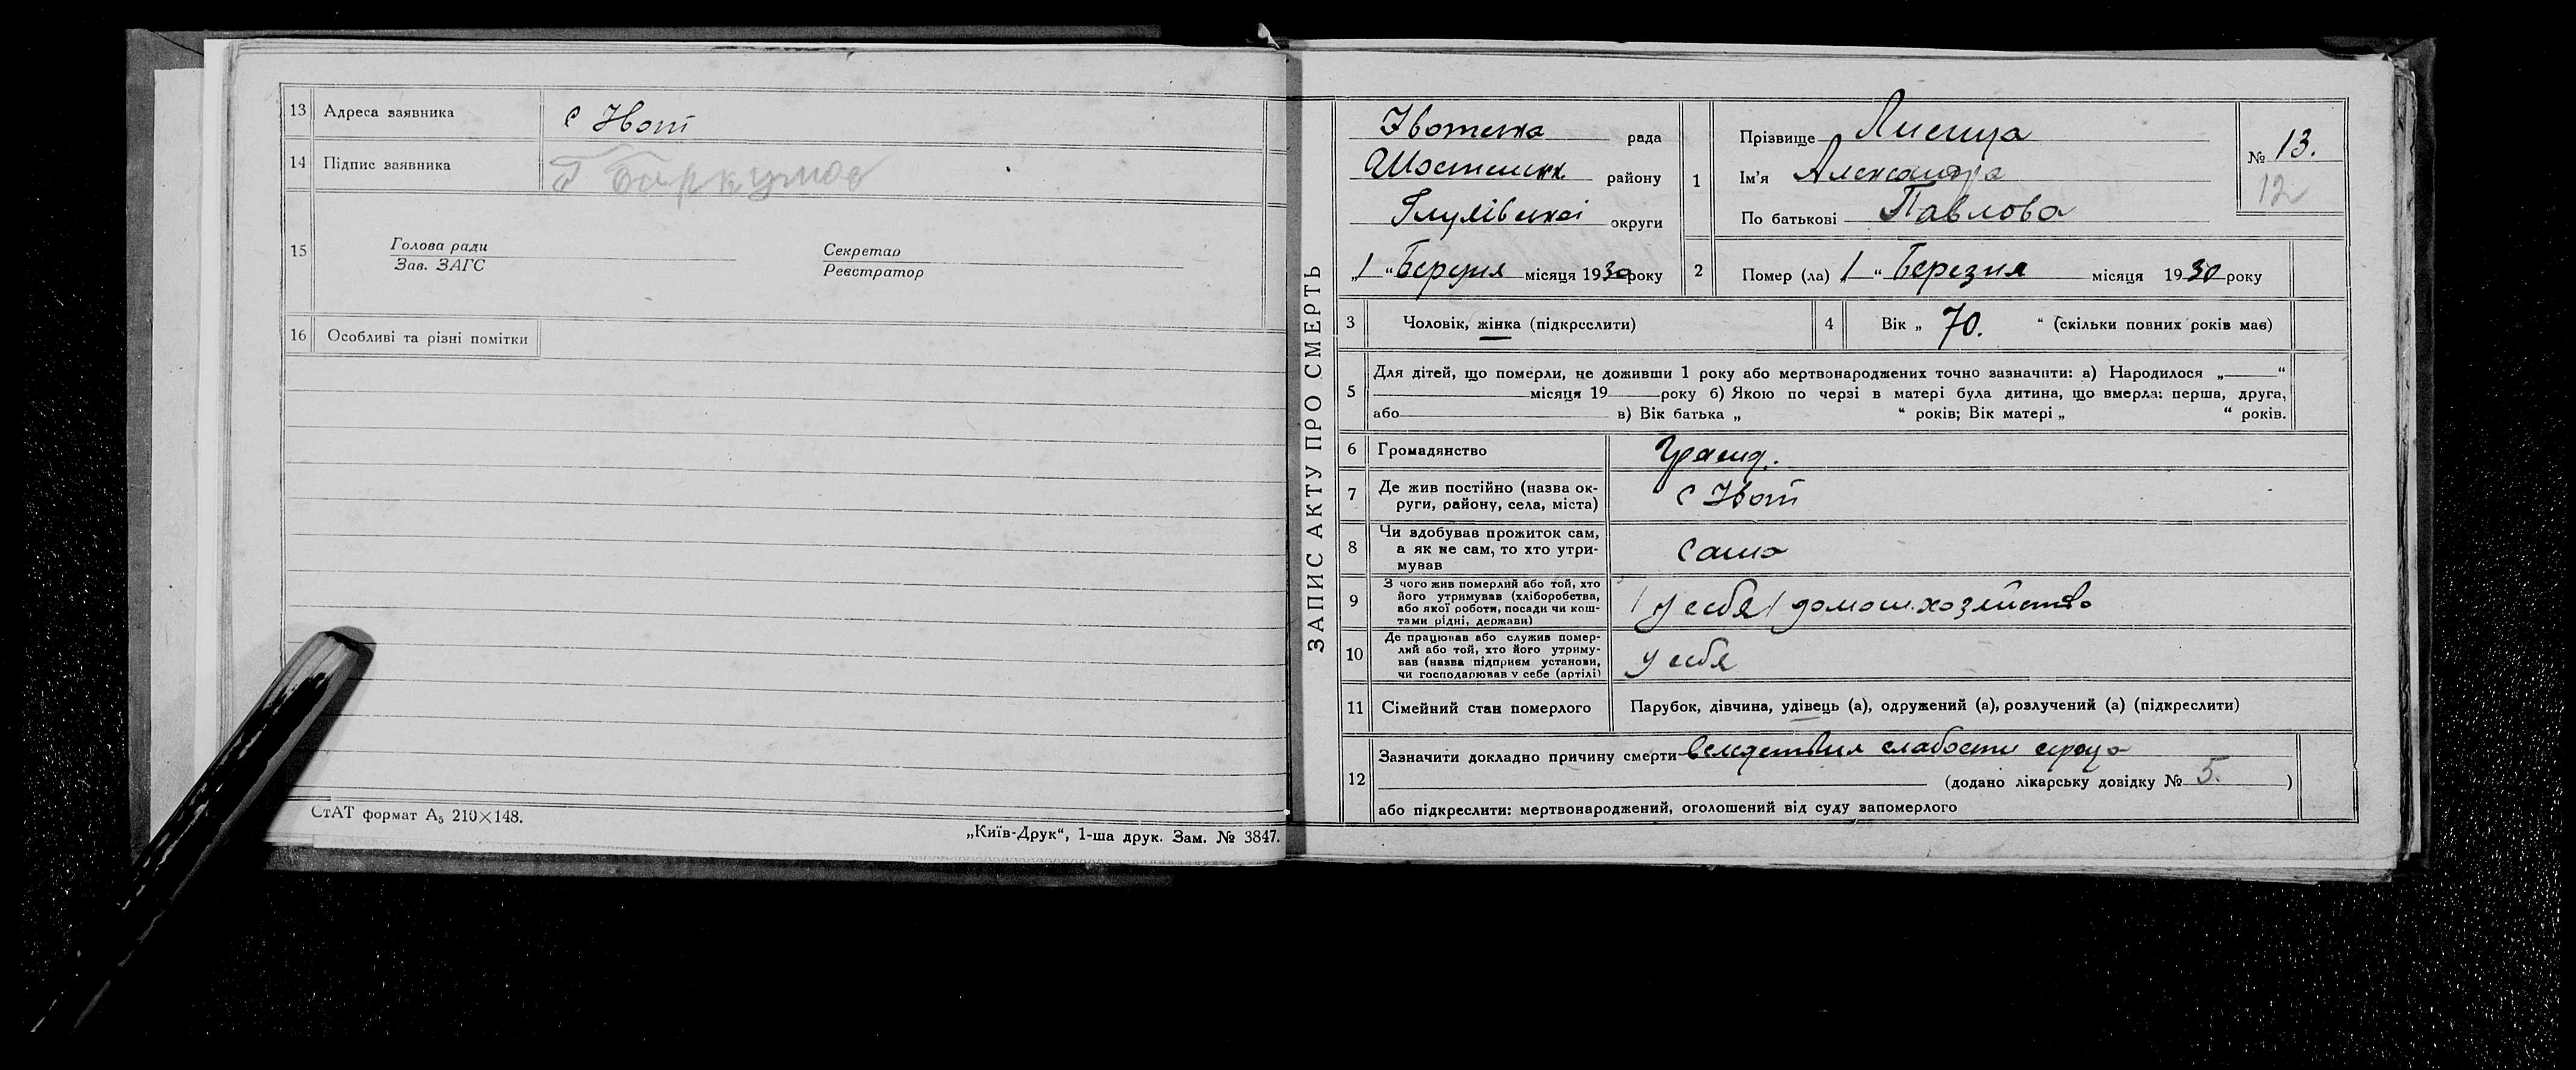 13 Адреса заявника с Ивот
14 Підпис заявника
15 Голова ради Секретар
Зав. ЗАГС Реєстратор
16 Особливі та різні помітки
СтАТ формат А₅ 210×148.
„Київ-Друк“, 1-ша друк. Зам. № 3847.
ЗАПИС АКТУ ПРО СМЕРТЬ
рада
району
Глухівської округи
„1“ Березня місяця 1930 року
1 Прізвище Лисица
Ім'я Александра
По батькові Павлова
№ 13.
12
2 Помер (ла) „1“ Березня місяця 1930 року
3 Чоловік, жінка (підкреслити)
4 Вік „70.“ (скільки повних років має)
5 Для дітей, що померли, не доживши 1 року або мертвонароджених точно зазначити: а) Народилося „ “
місяця 19 року б) Якою по черзі в матері була дитина, що вмерла: перша, друга,
або в) Вік батька „ “ років; Вік матері „ “ років.
6 Громадянство
7 Де жив постійно (назва ок-
руги, району, села, міста) с Ивот
8 Чи здобував прожиток сам,
а як не сам, то хто утри-
мував сама
9 З чого жив померлий або той, хто
його утримував (хліборобства,
або якої роботи, посади чи кош-
тами рідні, держави) у себя домаш. хозяйство
10 Де працював або служив помер-
лий або той, хто його утриму-
вав (назва підприєм установи,
чи господарював у себе (артілі) у себя
11 Сімейний стан померлого Парубок, дівчина, удівець (а), одружений (а), розлучений (а) (підкреслити)
12 Зазначити докладно причину смерти вследствия слабости сердца
(додано лікарську довідку № 5.)
або підкреслити: мертвонароджений, оголошений від суду запомерлого